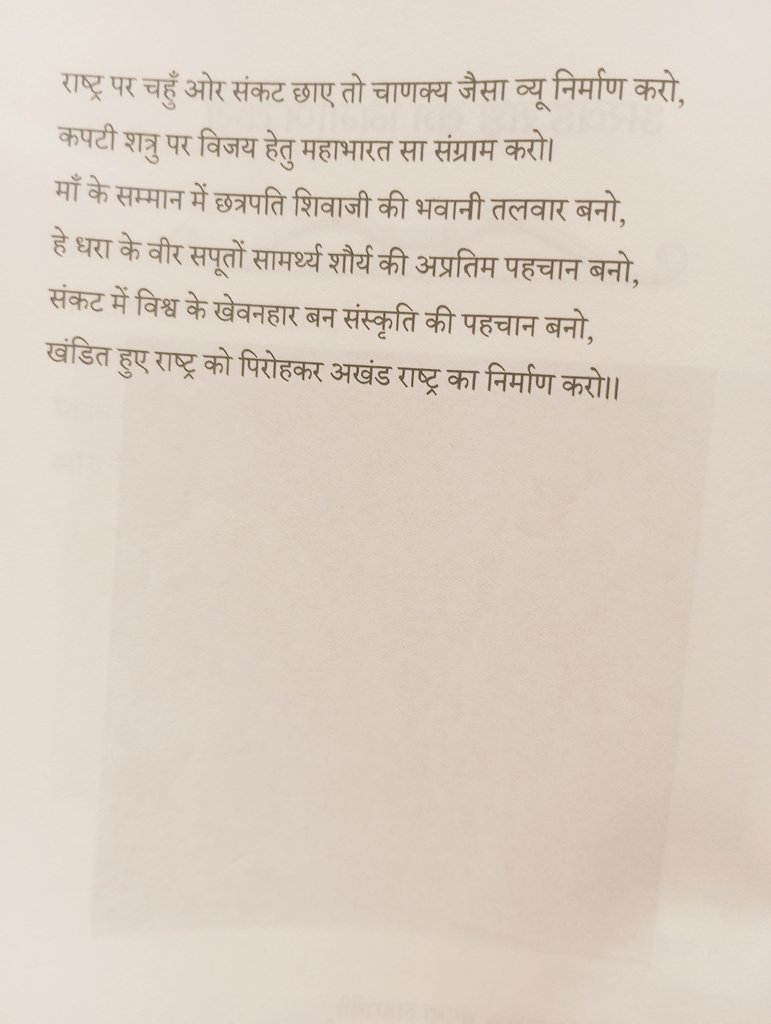 राष्ट्र पर चहुँ ओर संकट छाए तो चाणक्य जैसा व्यू निर्माण करो,
कपटी शत्रु पर विजय हेतु महाभारत सा संग्राम करो।
माँ के सम्मान में छत्रपति शिवाजी की भवानी तलवार बनो,
हे धरा के वीर सपूतों सामर्थ्य शौर्य की अप्रतिम पहचान बनो,
संकट में विश्व के खेवनहार बन संस्कृति की पहचान बनो,
खंडित हुए राष्ट्र को पिरोहकर अखंड राष्ट्र का निर्माण करो।।